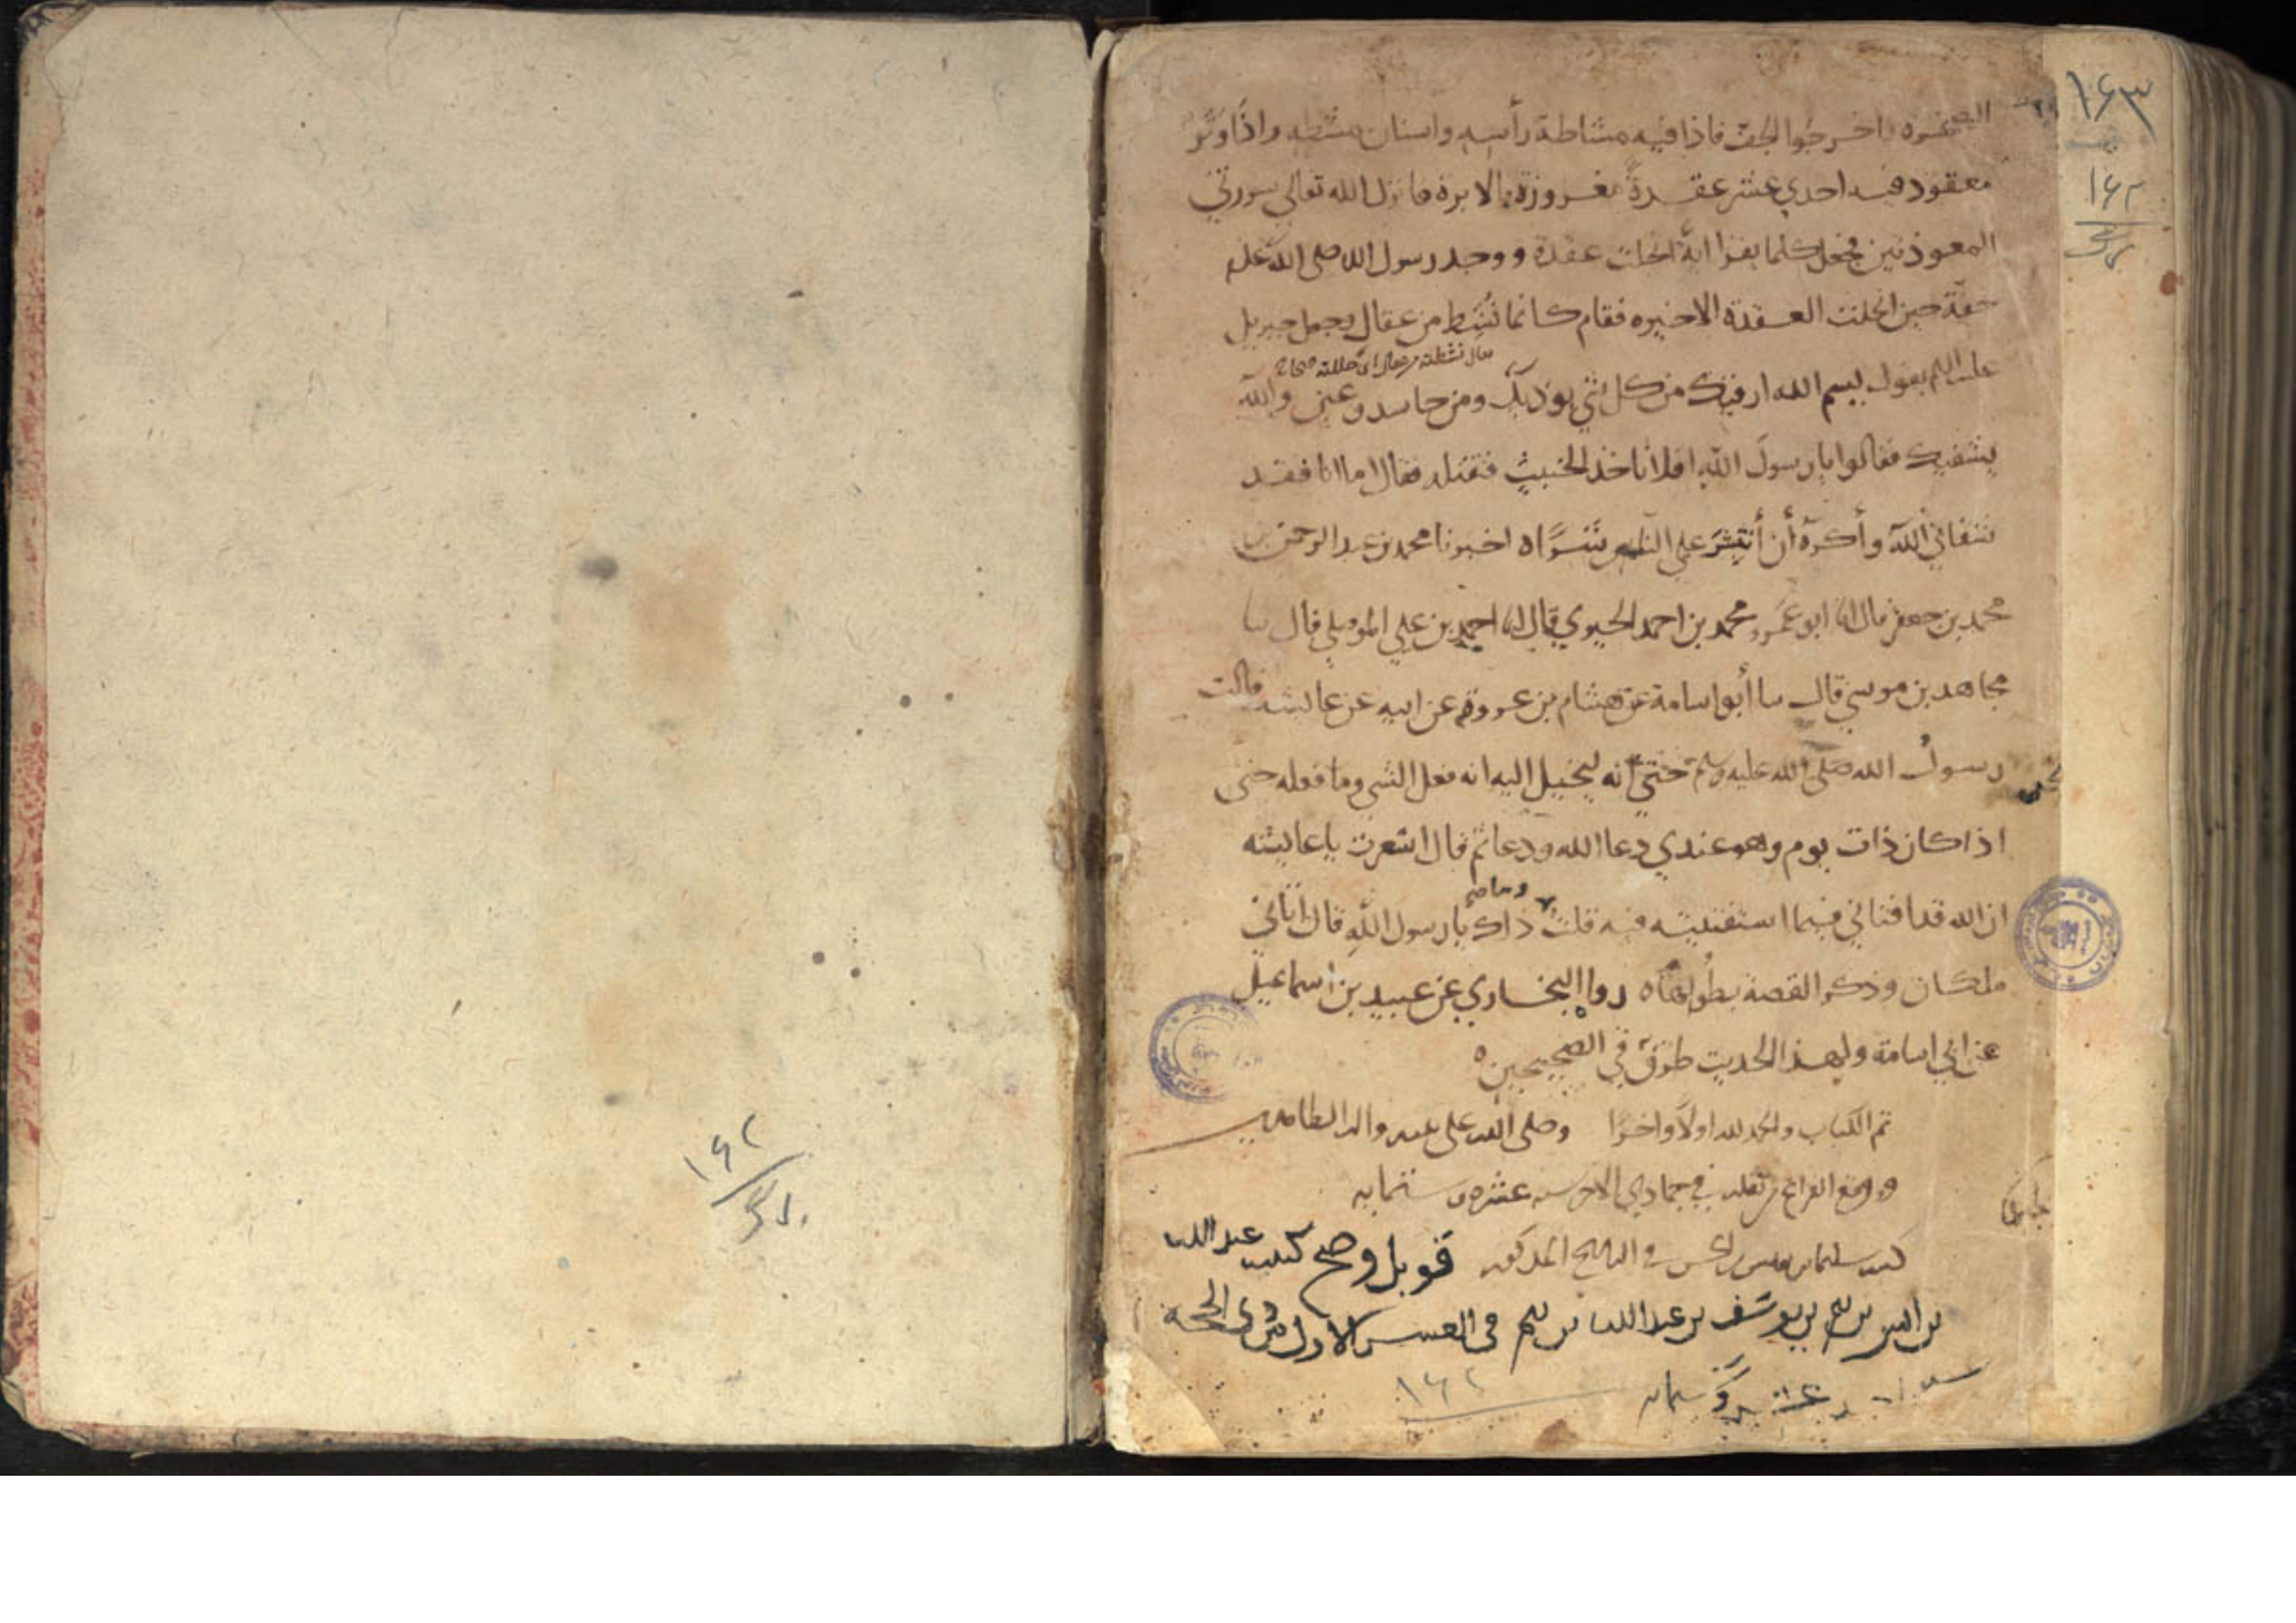 ١٦٣
١٦٢
الصخره واخرجوا الجف فاذا فيه مشاطة رأسه واسنان مشطه واذا وتر
معقود فيه احدي عشر عقدة مغروزة بالابرة فانزل الله تعالي سورتي
المعوذتين فجعل كلما يقرا اية انحلت عقدة ووجد رسول الله صلى الله علم
خفة حين انحلت العقدة الاخيره فقام كانما نشط من عقال وجعل جبريل
يقال نشطته من عقال اي حللته صحاح
عليه السلم يقول بسم الله ارقيك من كل شي يوذيك ومن حاسد وعين والله
يشفيك فقالوا يا رسول الله افلا ناخذ الخبيث فنقتله فقال اما انا فقد
شفاني الله وأكره أن أثير على الناس شرا ه اخبرنا محمد بن عبد الرحمن بن
محمد بن جعفر قال انا ابو عمرو محمد بن احمد الحيري قال انا احمد بن علي الموصلي قال سا
مجاهد بن موسي قال سا أبو اسامة عن هشام بن عروة عن ابيه عن عايشه قالت
سحر
رسول الله صلى الله عليه وسلم حتي انه ليخيل اليه انه فعل الشي وما فعله حتى
اذا كان ذات يوم وهو عندي دعا الله ودعا ثم قال اشعرت يا عايشه
وما صح
ان الله قد افتاني فيما استفتيته فيه قلت ذاك يا رسول الله قال اتاني
ملكان وذكر القصة بطولها ه رواه البخاري عن عبيد بن اسماعيل
عن ابي اسامة ولهذا الحديث طرق في الصحيحين ه
تم الكتاب والحمد لله اولا واخرا وصلى الله على محمد واله الطاهرين
ووقع الفراغ من نقله في جمادي الاخر سنه عشره وستمايه
كتبه سليمان في التاريخ المذكور قوبل وصح كتبه عبد الله
بن بن يوسف بن عبد الله بن في العشر الاول من ذي الحجة
سنة عشر وستمايه
١٦٢
١٦٢
برگ